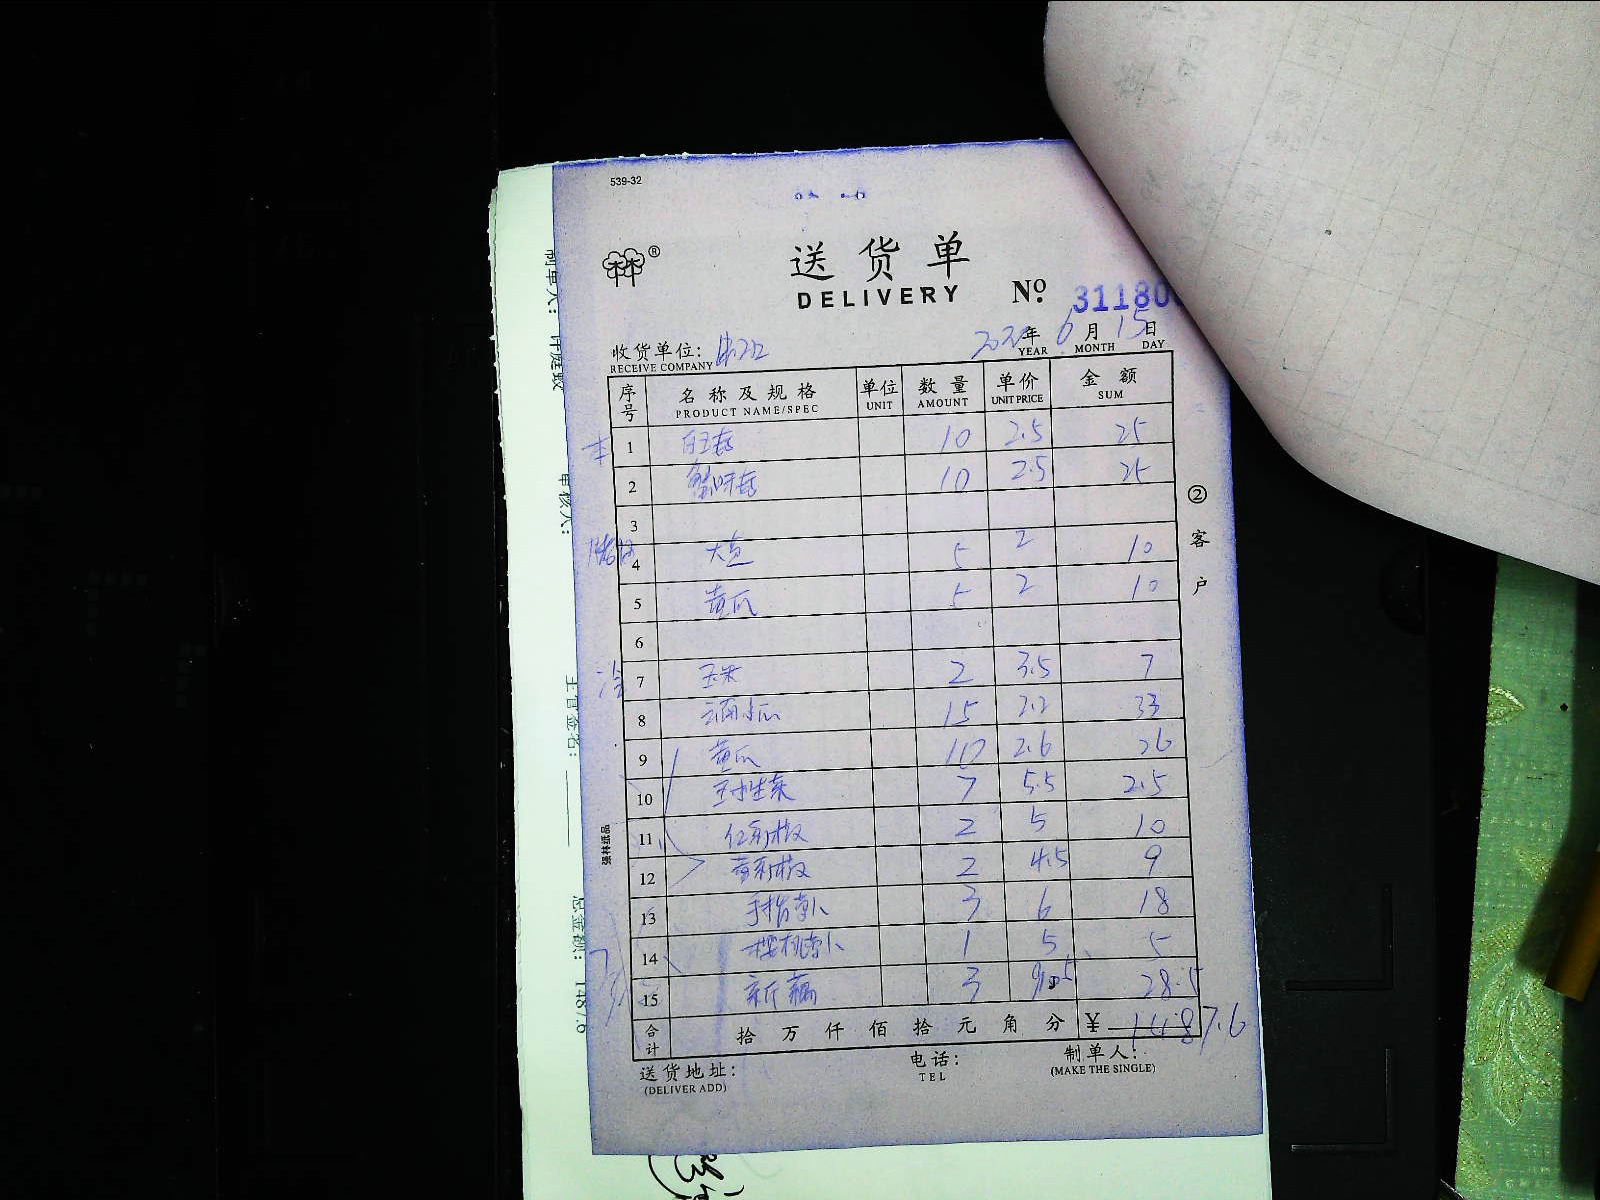 539-32
送货单
DELIVERY
№ 31180
收货单位:
RECEIVE COMPANY
年 6 月 15 日
YEAR MONTH DAY
序号 名称及规格 单位 数量 单价 金额
PRODUCT NAME/SPEC UNIT AMOUNT UNIT PRICE SUM
本 1 白玉菇 10 2.5 25
2 蟹味菇 10 2.5 25
3
4 大豆 5 2 10
5 黄瓜 5 2 10
6
冷 7 玉米 2 3.5 7
8 15 2.2 33
9 黄瓜 10 2.6 26
10 7 5.5 2.5
11 2 5 10
12 2 4.5 9
13 手指萝卜 3 6 18
14 樱桃萝卜 1 5 5
15 新藕 3 9.5 28.5
合计 拾万仟佰拾元角分 ¥ 1487.6
送货地址: 电话: 制单人:
(DELIVER ADD) TEL (MAKE THE SINGLE)
②客户
强林纸品
制单人:
审核人:
主管签名:
总金额: 1487.6